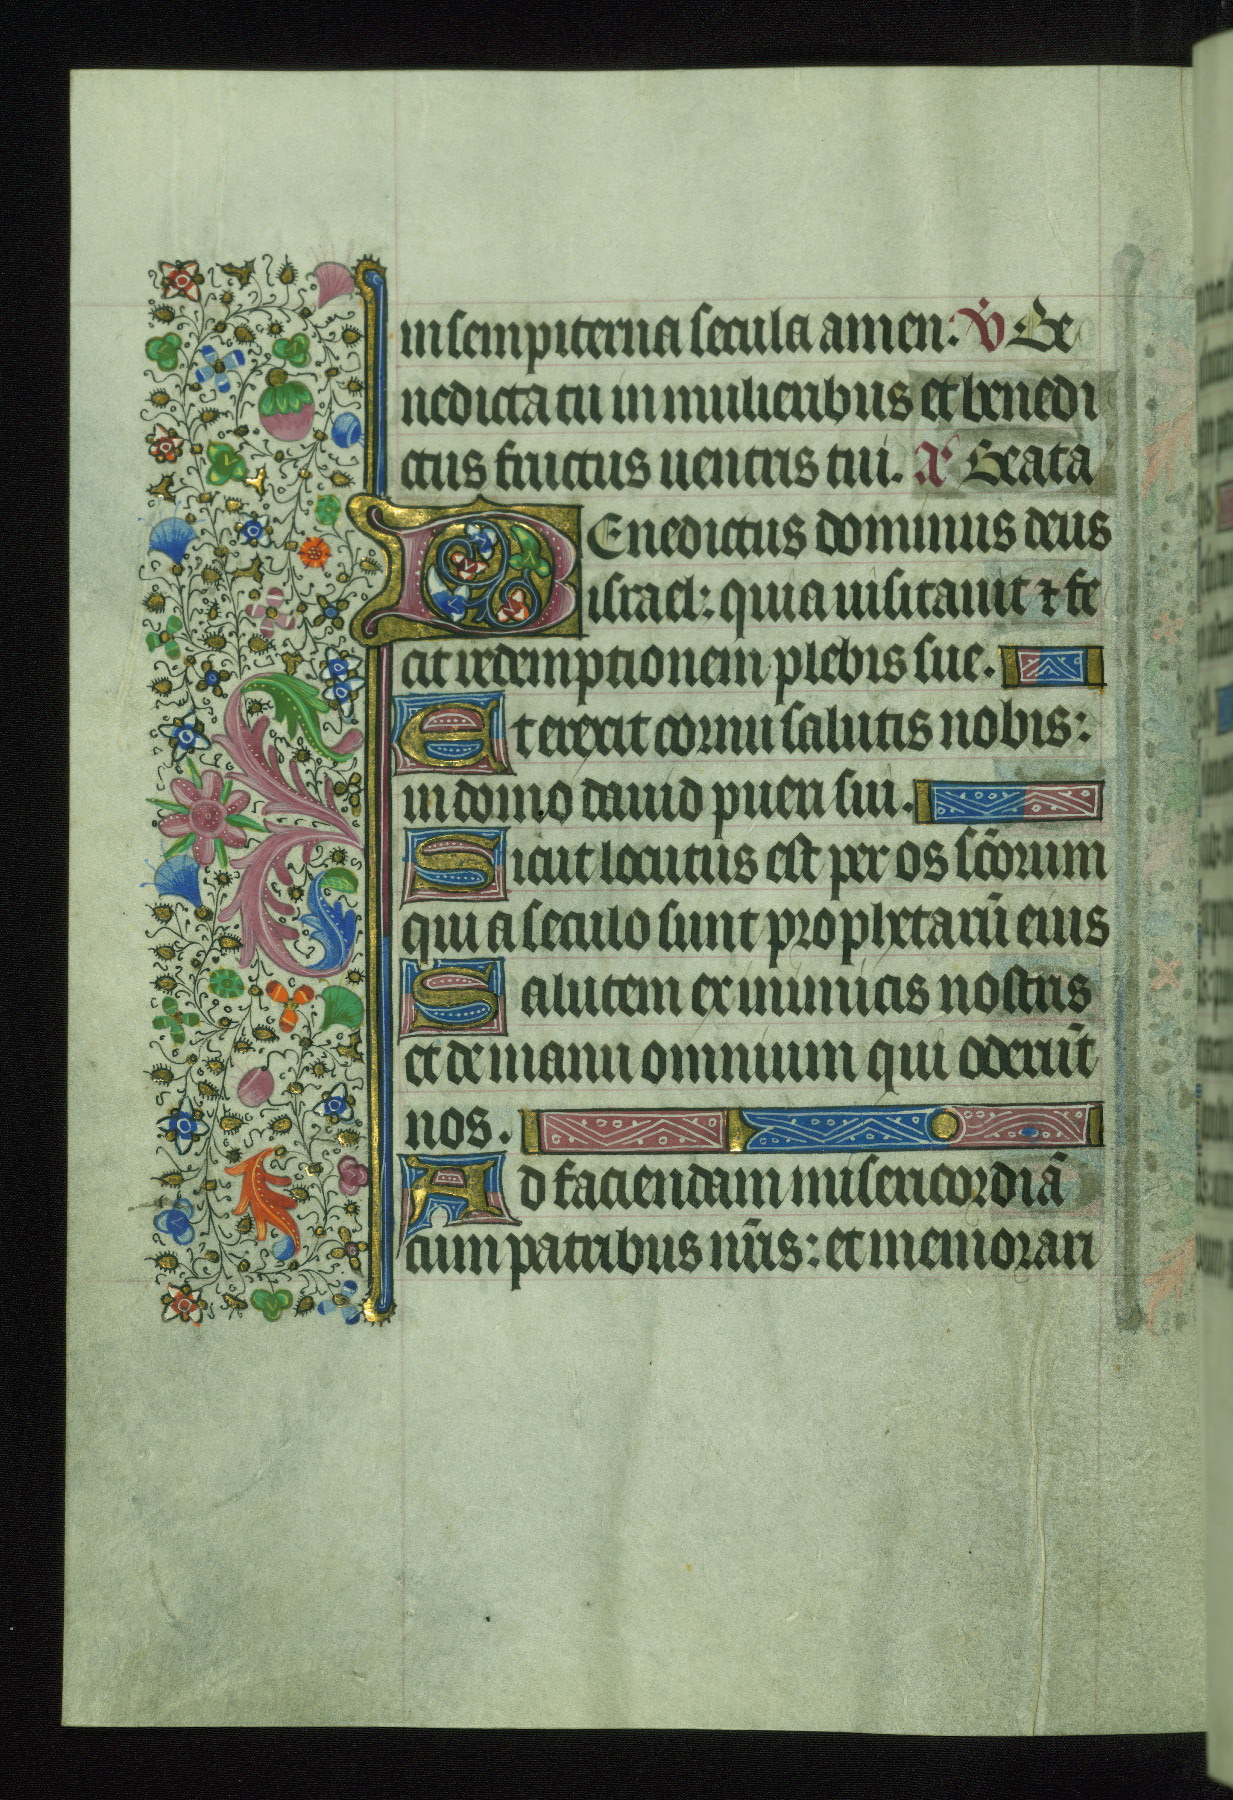 in sempiterna secula amen: V̇ Be
nedicta tu in mulieribus et benedi
ctus fructus uentris tui. A Beata
BEnedictus dominus deus
israel: quia uisitauit ⁊ fe
cit redemptionem plebis sue.
Et erexit cornu salutis nobis:
in domo dauid pueri sui.
Sicut locutus est per os sc̄orum
qui a seculo sunt prophetarū eius
Salutem ex inimicis nostris
et de manu omnium qui oderūt
nos.
Ad faciendam misericordiā
cum patribus nr̄is: et memorari